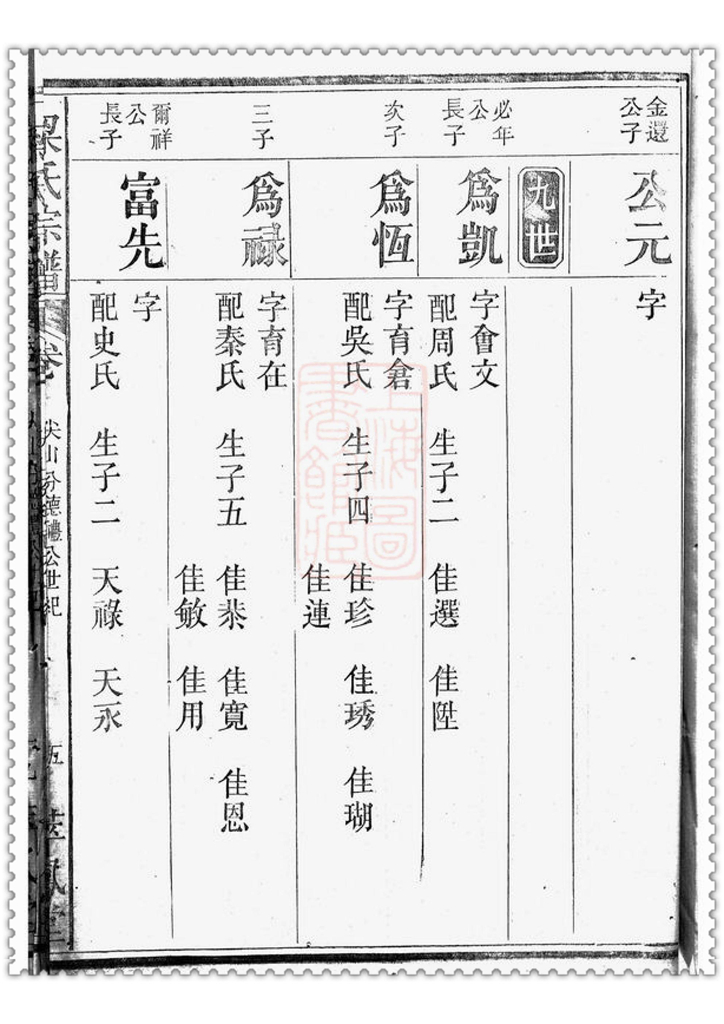 金還
公子
公元
字
九世
必年
公
長子
爲凱
字會文
配周氏 生子二 佳選 佳陞
次子
爲恆
字育倉
配吳氏 生子四 佳珍 佳琇 佳瑚
佳連
三子
爲禄
字育在
配秦氏 生子五 佳恭 佳寬 佳恩
佳敏 佳用
爾祥
公
長子
富先
字
配史氏 生子二 天祿 天永
梁氏宗譜
卷
尖山分德禮公世紀
五
上海圖書館藏